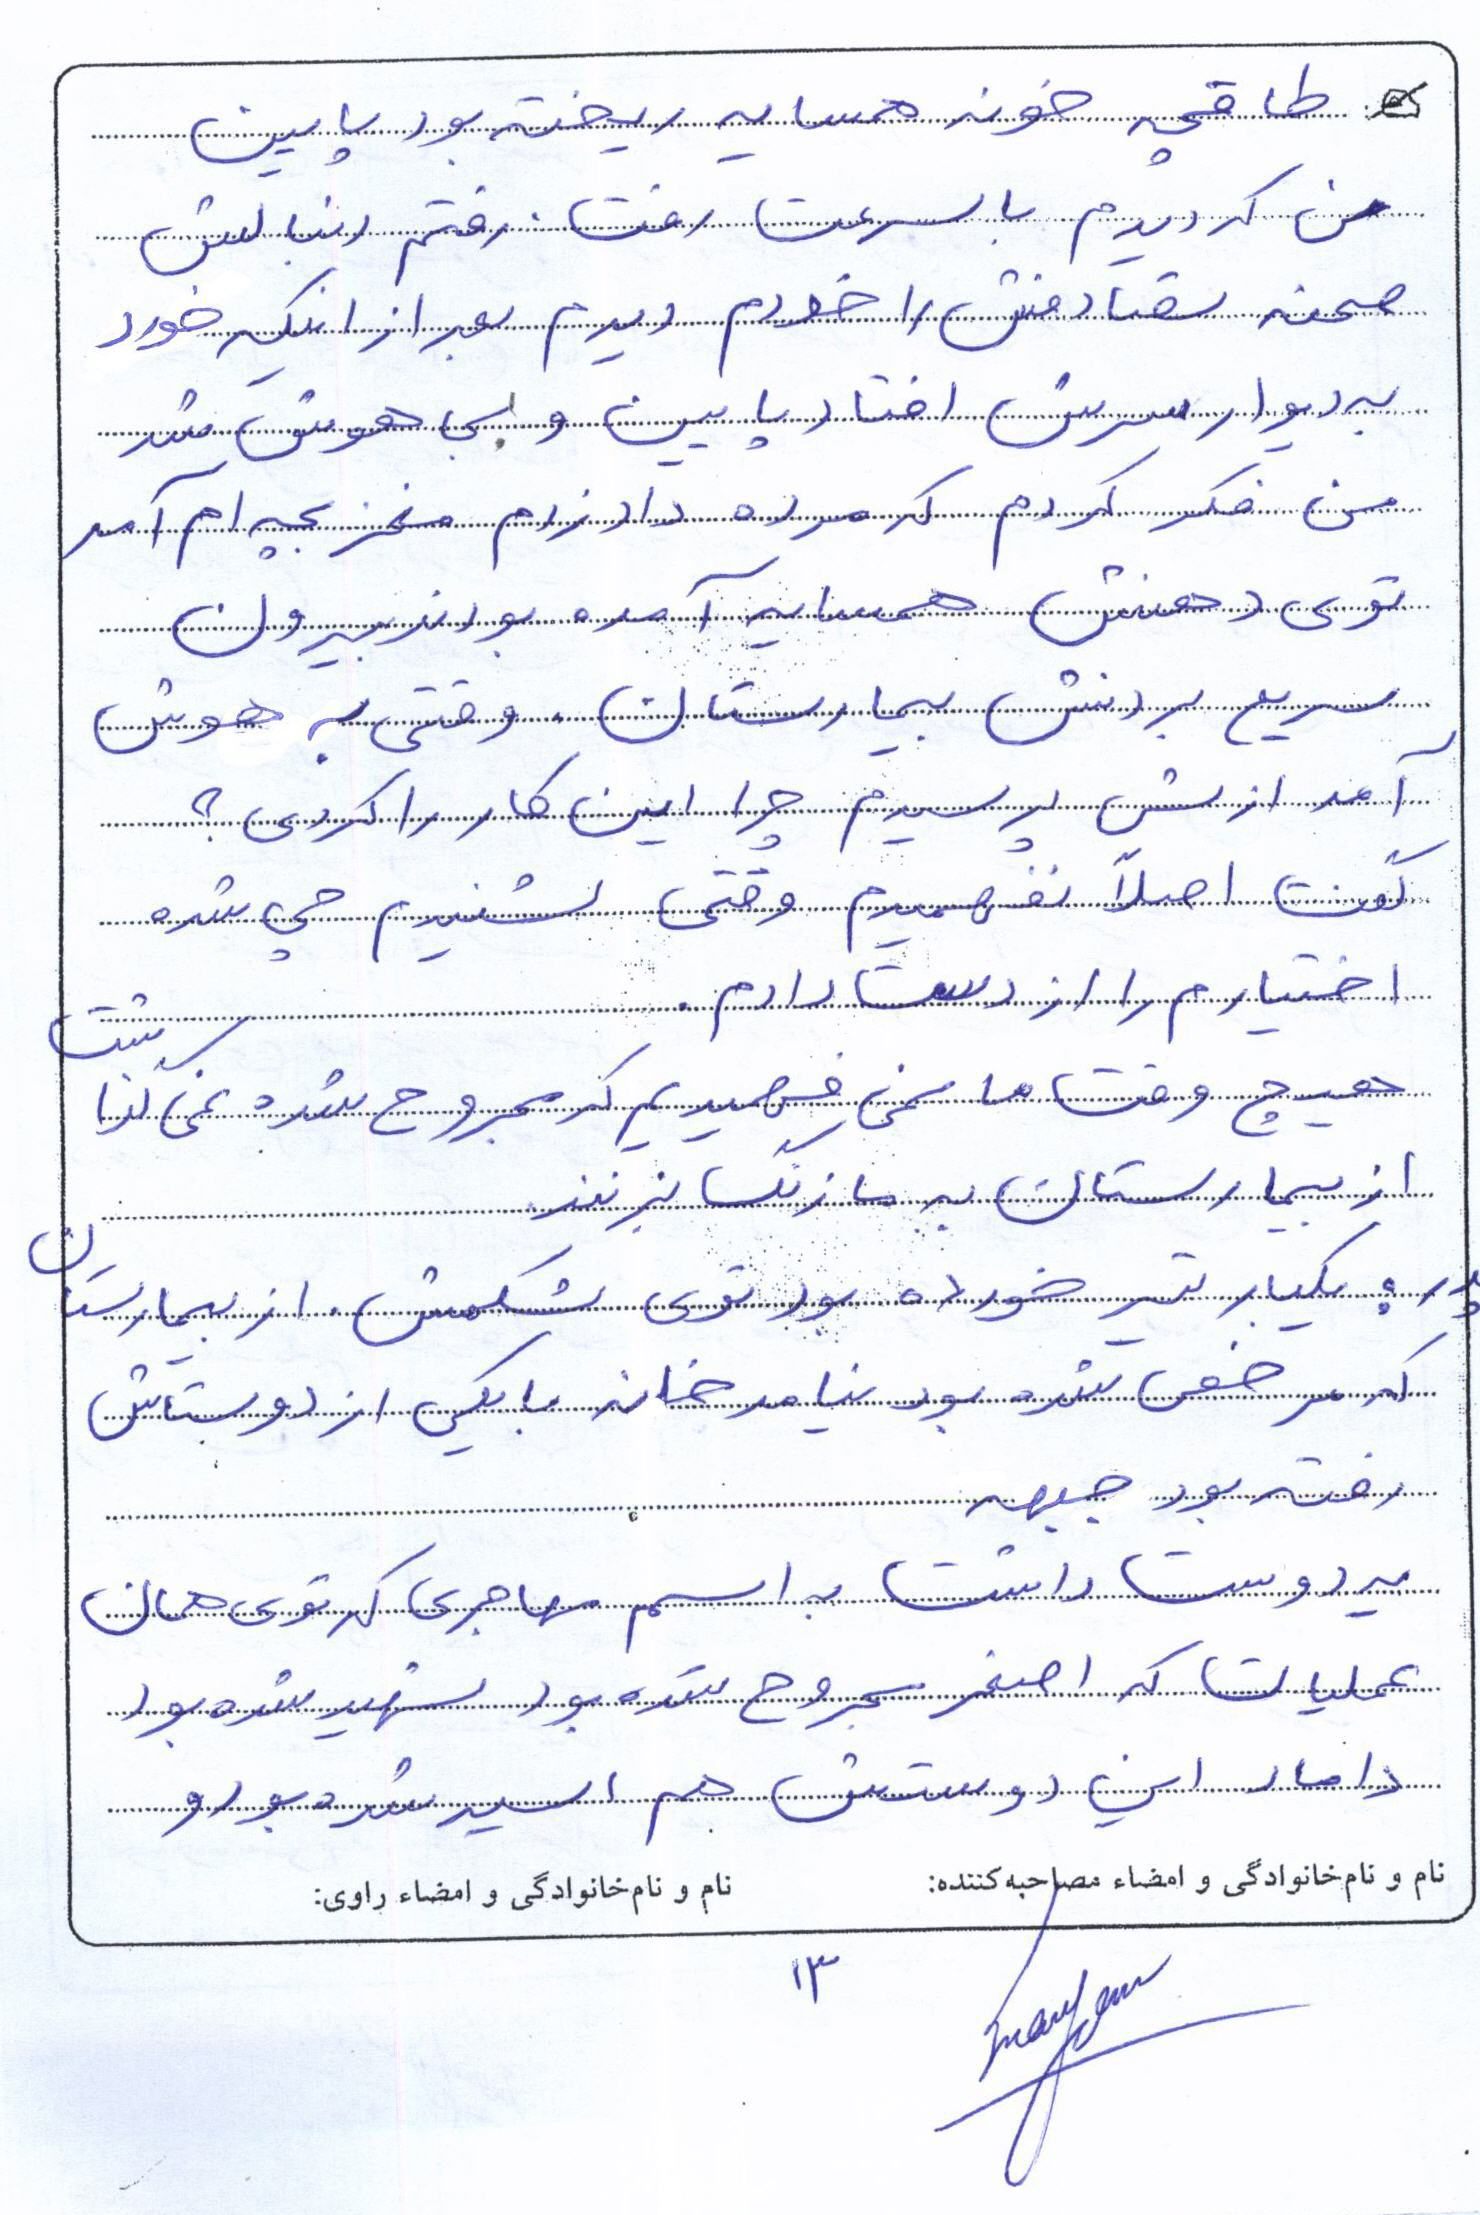 طاقچه خونه همسایه ریخته بود پایین
من که دیدم با سرعت رفت. رفتم دنبالش
صحنه تصادفش را خودم دیدم بعد از اینکه خورد
به دیوار سرش افتاد پایین و بی هوش شد
من فکر کردم که مرده داد زدم مغز بچه ام آمد
توی دهنش همسایه آمده بودند بیرون
سریع بردنش بیمارستان. وقتی به هوش
آمد ازش پرسیدم چرا این کار را کردی؟
گفت اصلاً نفهمیدم وقتی شنیدم چی شده
اختیارم را از دست دادم.
هیچ وقت ما نمی فهمیدیم که مجروح شده نمی گذاشت
از بیمارستان به ما زنگ بزنند.
پدر: یکبار تیر خورده بود توی شکمش. از بیمارستان
که مرخص شده بود نیامد خانه با یکی از دوستاش
رفته بود جبهه
یه دوست داشت به اسم مهاجری که توی همان
عملیات که اصغر مجروح شده بود شهید شده بود
داماد این دوستش هم اسیر شده بود و
نام و نام‌خانوادگی و امضاء مصاحبه‌کننده: نام و نام‌خانوادگی و امضاء راوی:
۱۳
maryam